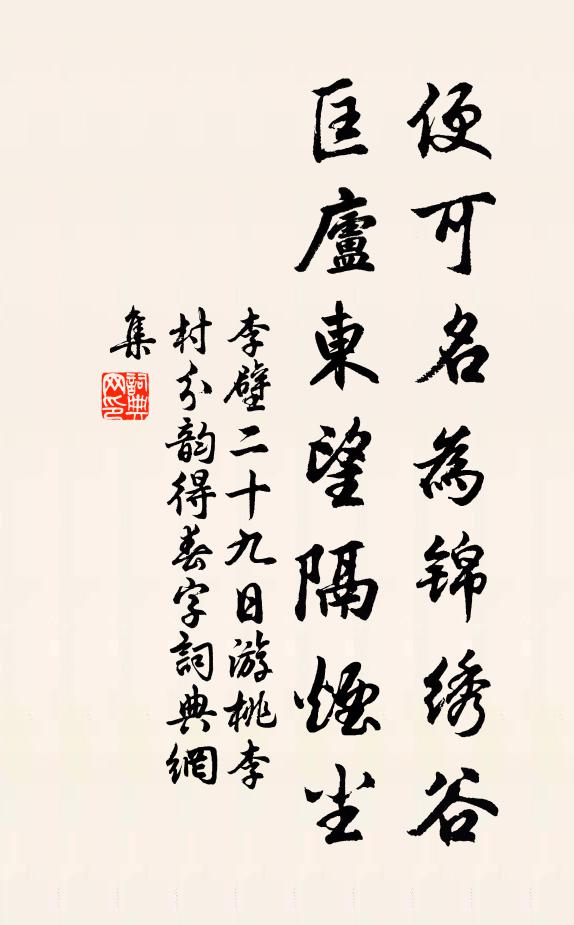 便可名為锦绣谷
匡廬東望隔煙尘
李壁二十九日游桃李
村分韵得春字詞典網
集
詞典网印